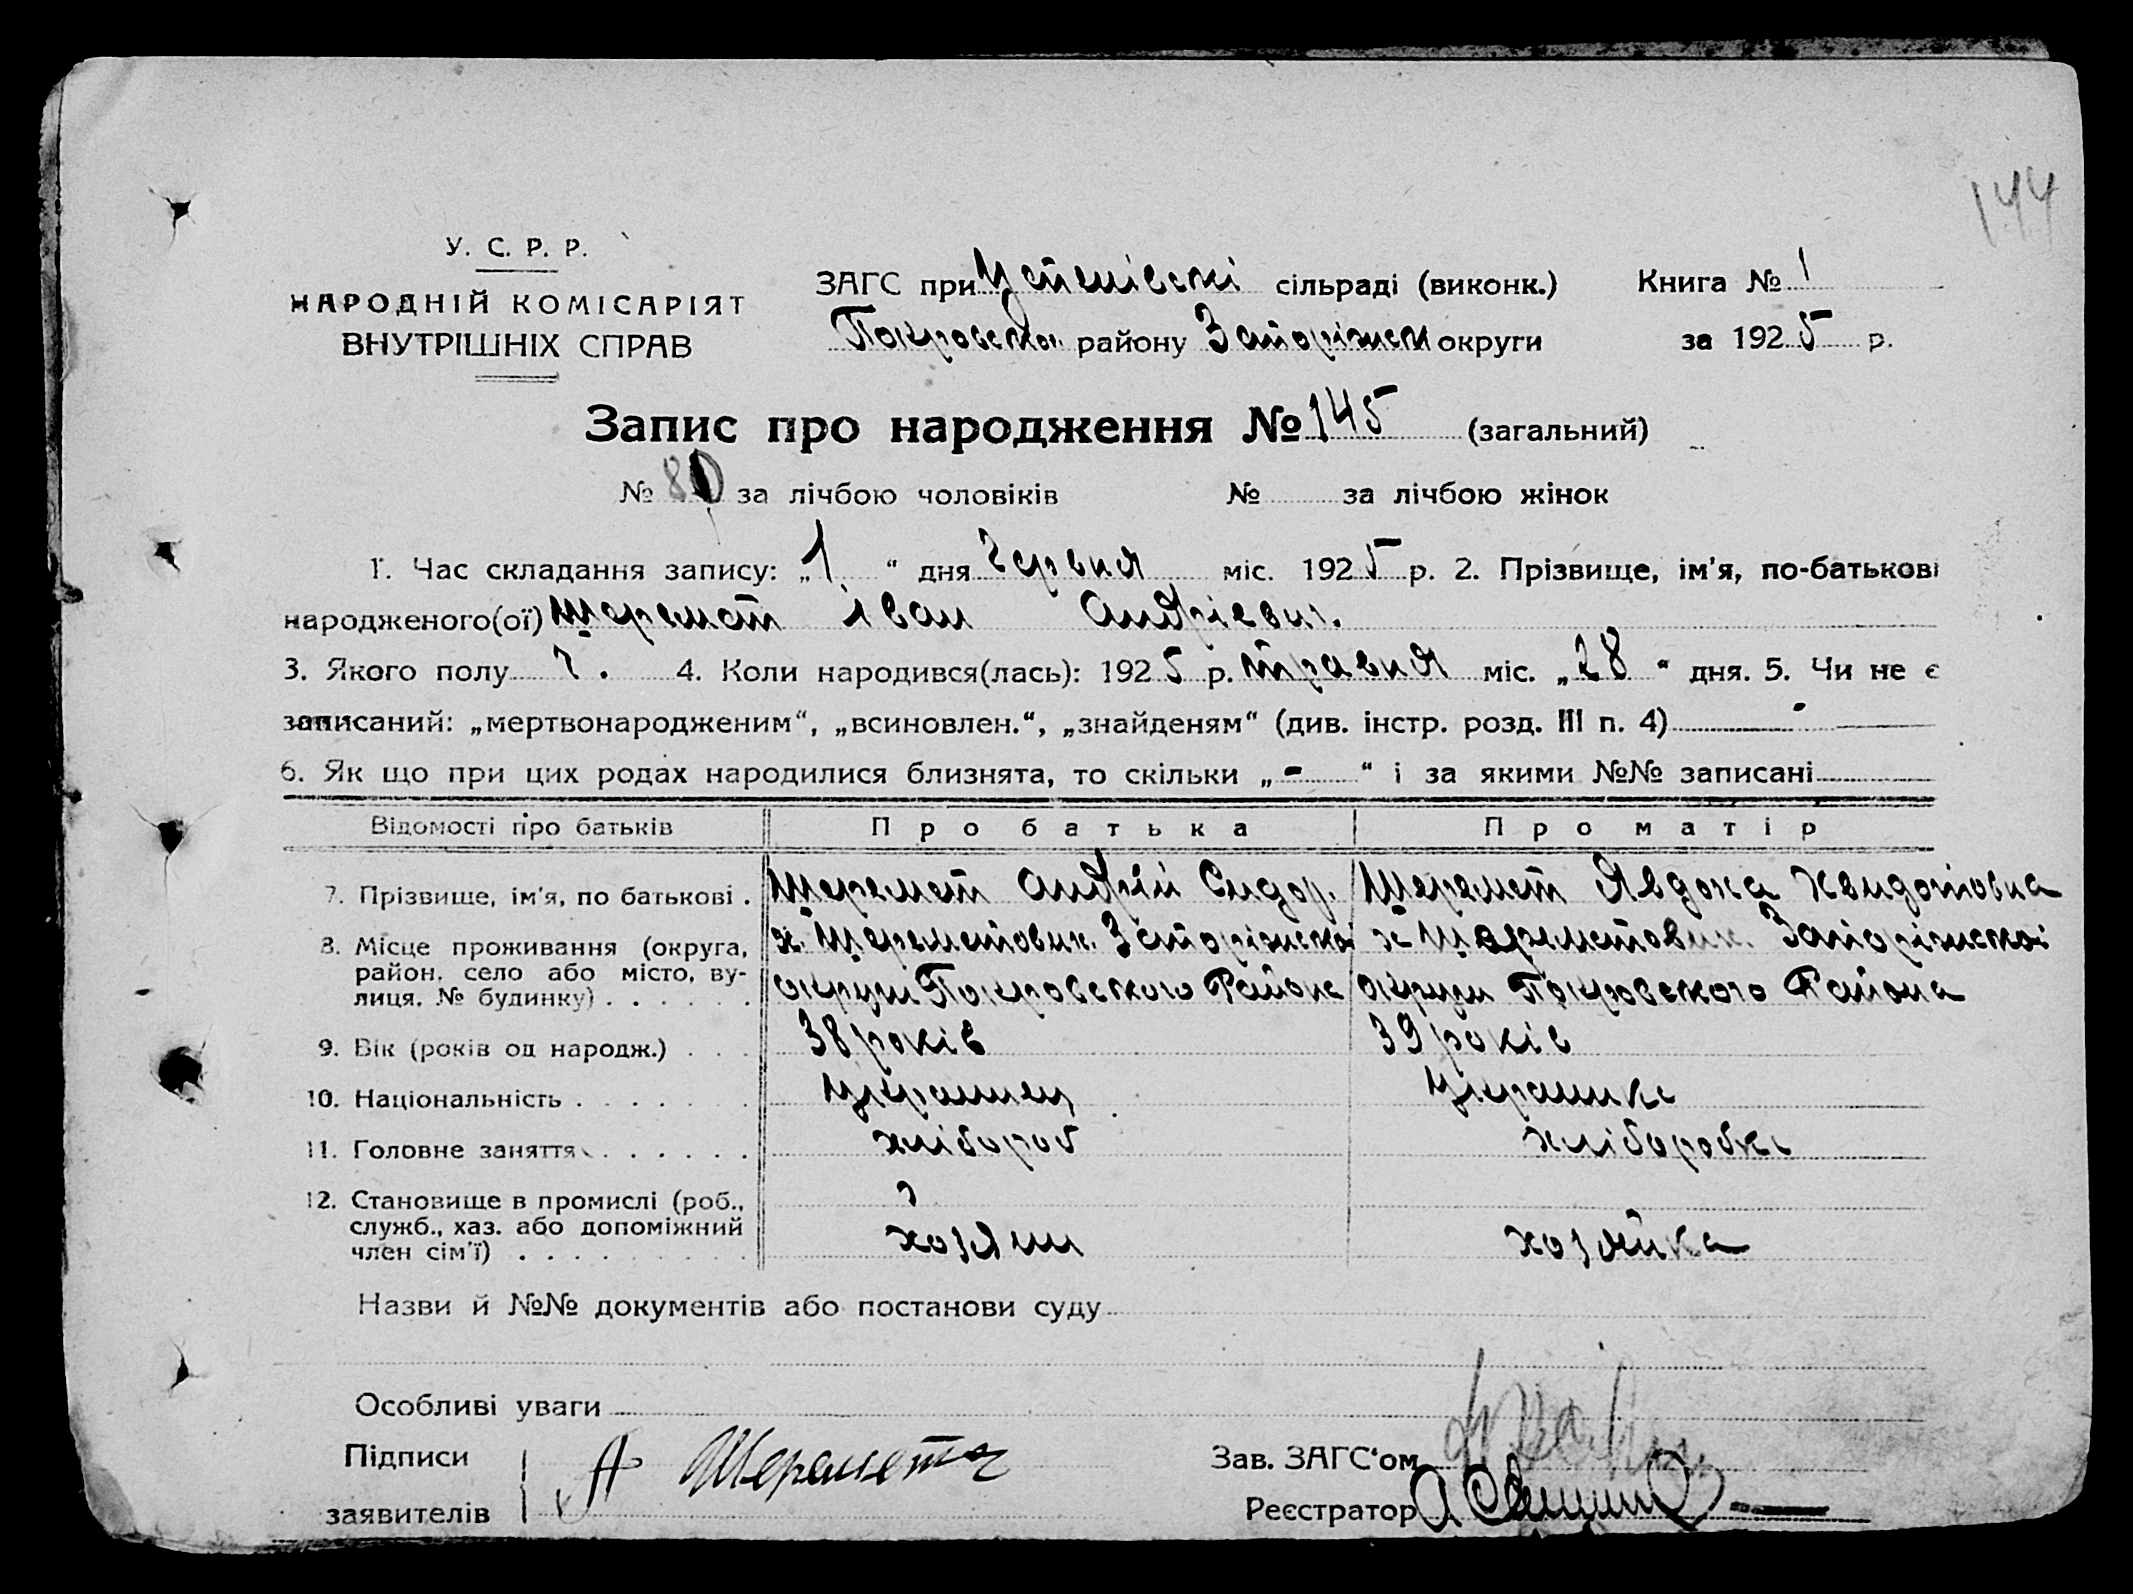 144
У. С. Р. Р.
НАРОДНІЙ КОМІСАРІЯТ
ВНУТРІШНІХ СПРАВ
ЗАГС при сільраді (виконк.) Книга № 1
Покровськ. району Запоріжськ округи за 1925 р.
Запис про народження № 145 (загальний)
№ 80 за лічбою чоловіків № за лічбою жінок
1. Час складання запису: „1“ дня Червня міс. 1925 р. 2. Прізвище, ім'я, по-батькові
народженого(ої) Шеремет Іван Андрієвич.
3. Якого полу ч. 4. Коли народився(лась): 1925 р. травня міс. „28“ дня. 5. Чи не є
записаний: „мертвонародженим“, „всиновлен.“, „знайденям“ (див. інстр. розд. III п. 4) -
6. Як що при цих родах народилися близнята, то скільки „-“ і за якими №№ записані
Відомості про батьків Про батька Про матір
7. Прізвище, ім'я, по батькові . Шеремет Андрій Сидор. Шеремет Явдоха
8. Місце проживання (округа, х. Шереметовик. Запоріжскоі х Шереметовик. Запоріжскоі
район, село або місто, ву-
лиця, № будинку) . . . . . . округи Покровского Района округи Покровского Района
9. Вік (років од народж.) . . . 38 років 39 років
10. Національність . . . . . . . Українец Українка
11. Головне заняття . . . . . . хлібороб хліборобка
12. Становище в промислі (роб.,
служб., хаз. або допоміжний
член сім'ї) . . . . . . . . . хозяин хозяйка
Назви й №№ документів або постанови суду
Особливі уваги
Підписи
заявителів А Шеремета
Зав. ЗАГС'ом
Реєстратор